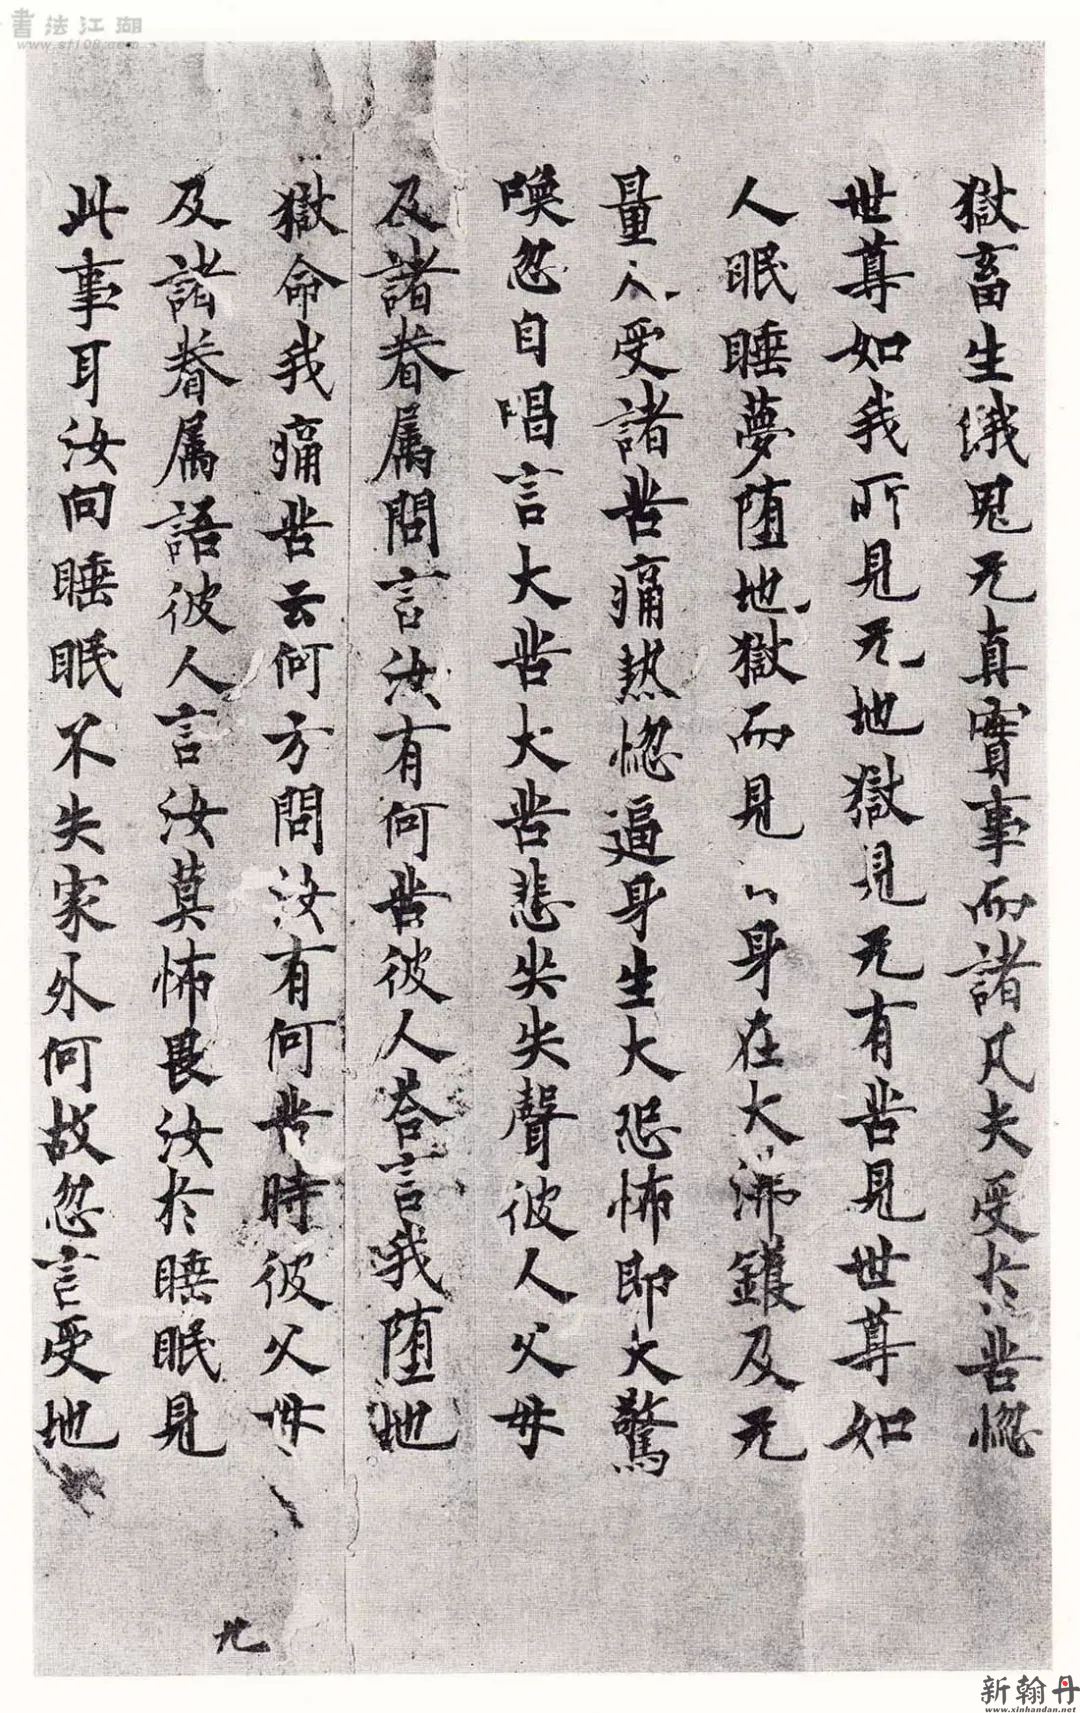 書法江湖
www.sf108.com
獄畜生餓鬼无真實事而諸凡夫受於苦惱
世尊如我所見无地獄見无有苦見世尊如
人眠睡夢堕地獄而見〻身在大沸鑊及无
量人〻受諸苦痛热惱逼身生大恐怖即大驚
喚忽自唱言大苦大苦悲哭失聲彼人父母
及諸眷属問言汝有何苦彼人荅言我堕地
獄命我痛苦云何方問汝有何苦時彼父母
及諸眷属語彼人言汝莫怖畏汝於睡眠見
此事耳汝向睡眠不失家外何故忽言受地
九
新翰丹
www.xinhandan.net